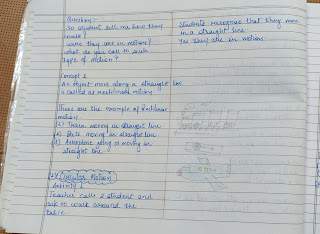 Question:-
So student tell me how they
move?
were they are in motion?
what do you call to such
type of motion?
Students recognise that they move
in a straight line
Yes they are in motion
Concept 1
An object move along a straight line
is called as rectilinear motion
These are the example of Rectilinear
motion
(1) Train moving in straight line
(2) Bull moving in straight line
(3) Aeroplane using or moving in
straight line
Circular Motion
Activity
Teacher calls 2 student and
ask to walk around the
table